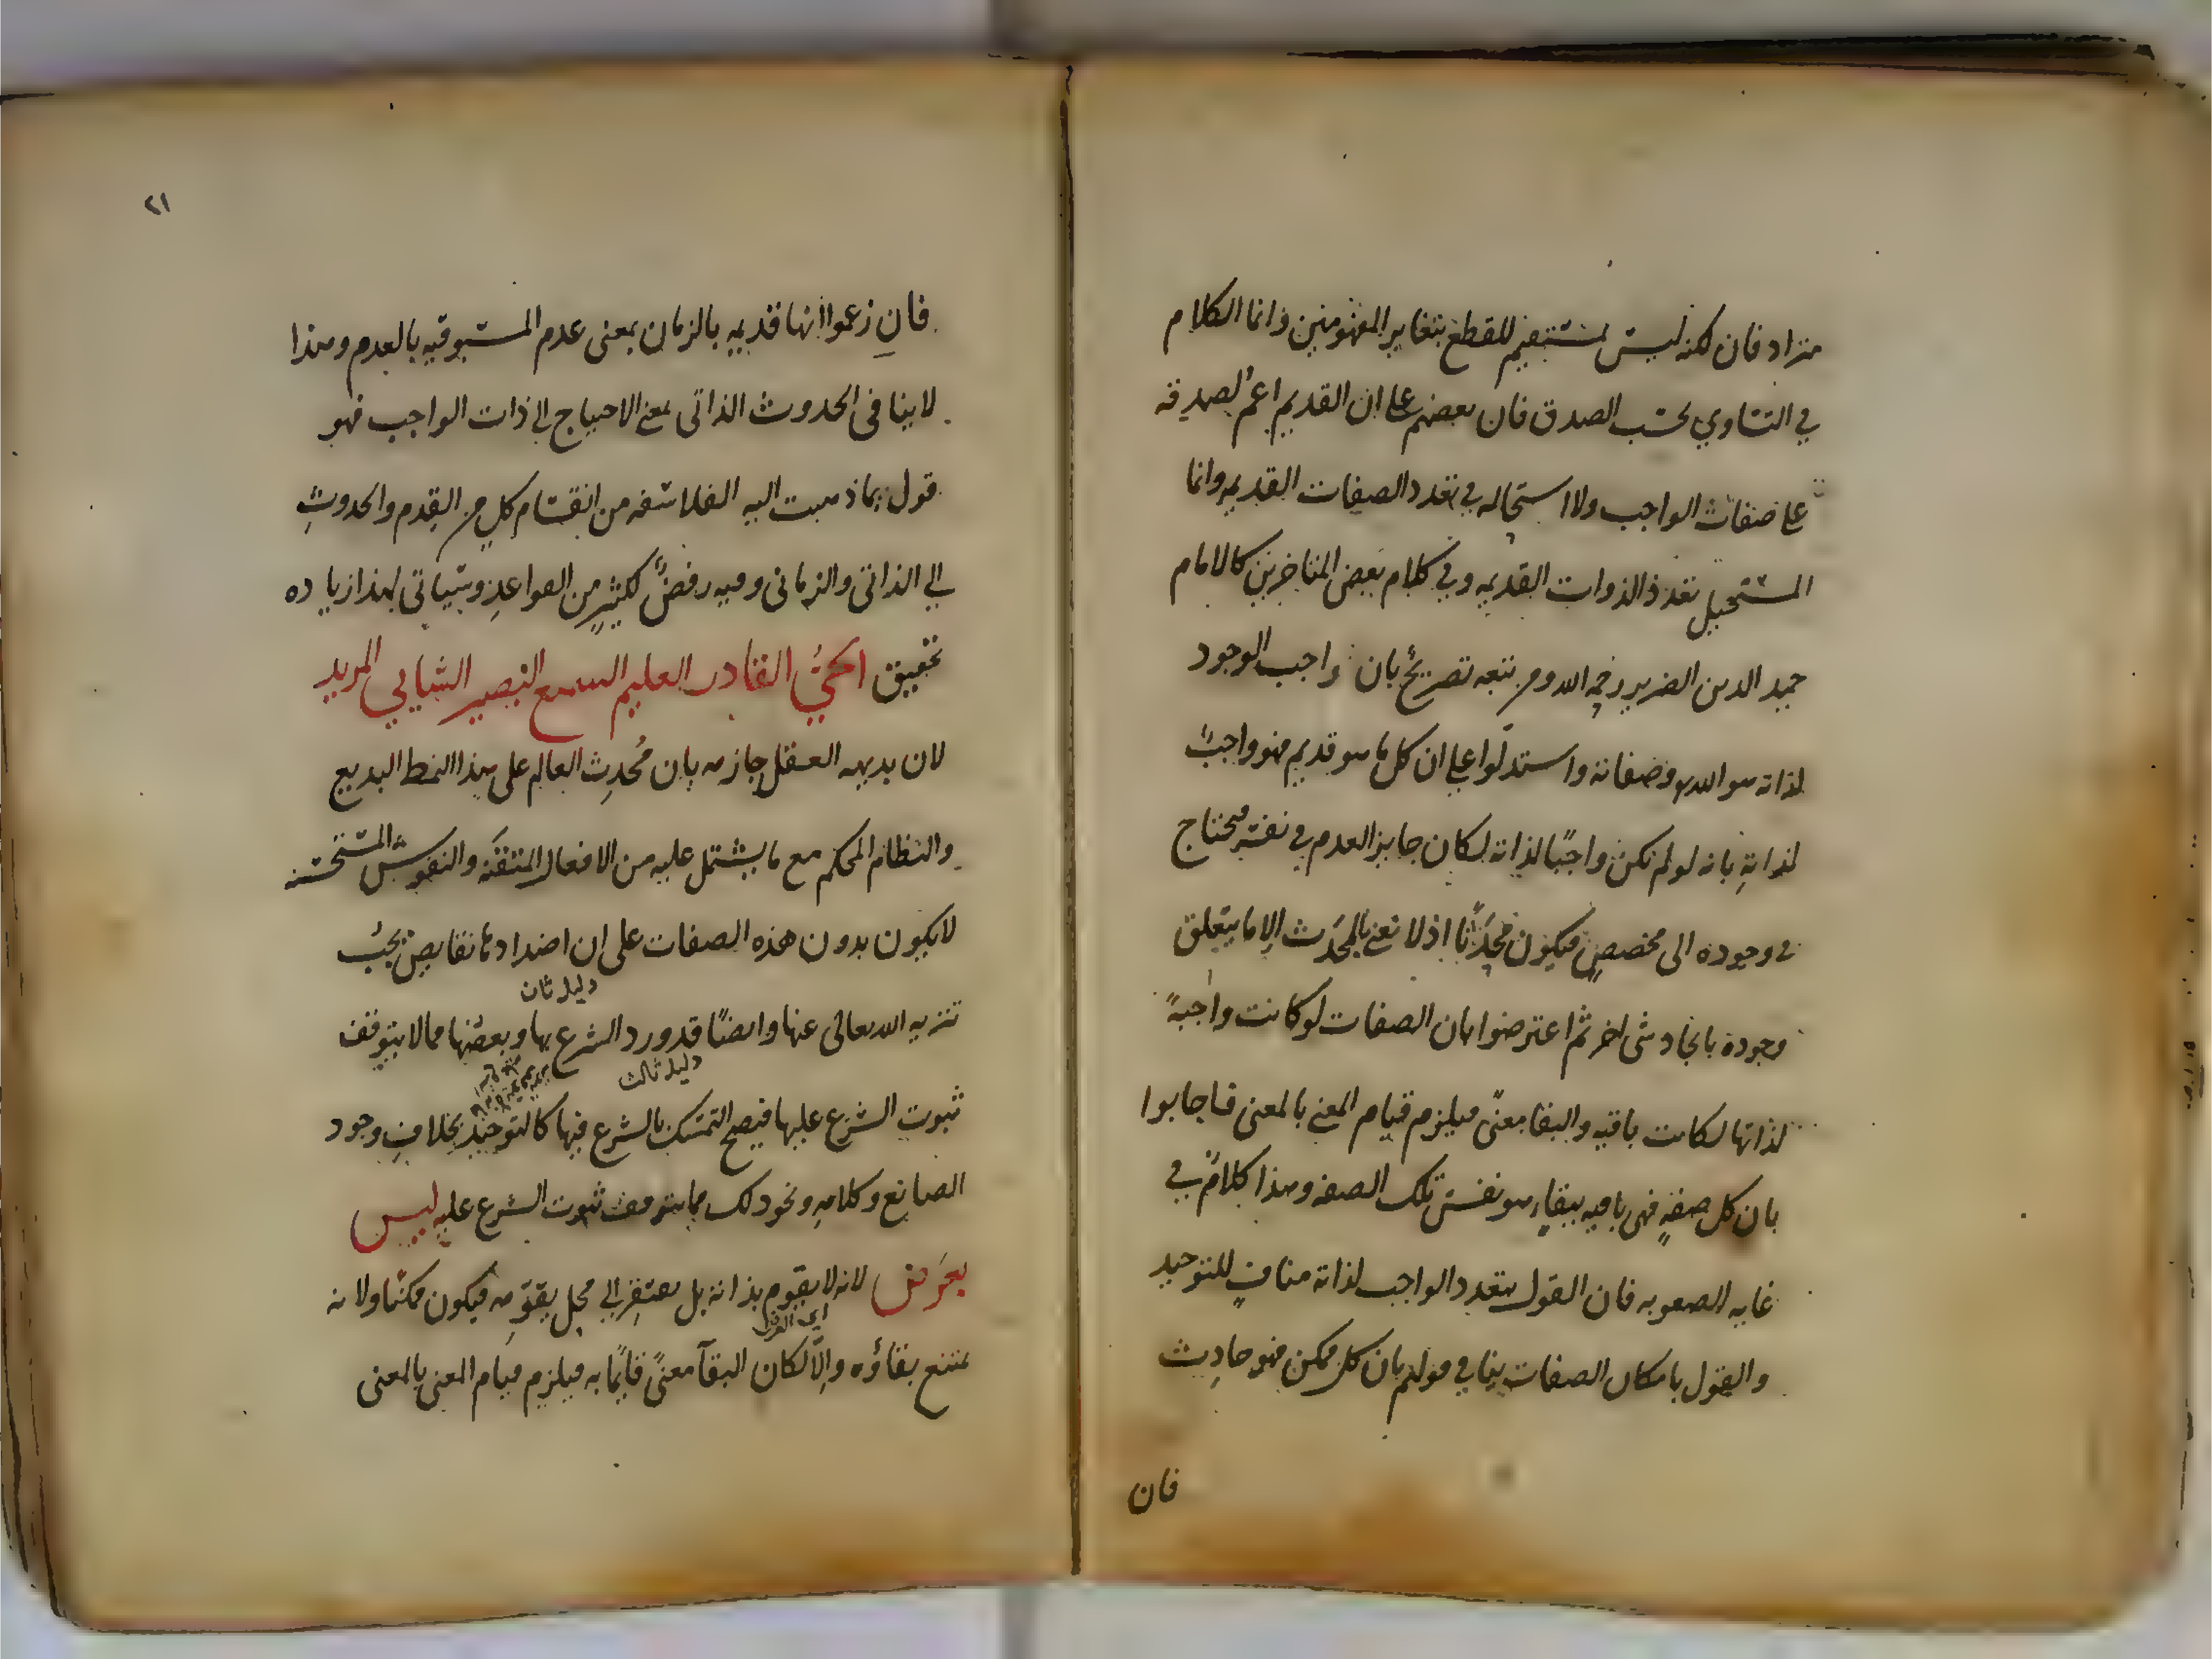 متراد فان لكنه ليس بمستقيم للقطع بتغاير المفهومين وانما الكلام
في التساوي بحسب الصدق فان بعضهم على ان القديم اعم لصدقه
على صفات الواجب ولا استحاله في تعدد الصفات القديمه وانما
المستحيل تعدد الذوات القديمه وفي كلام بعض المتاخرين كالامام
حميد الدين الضرير رحمه الله ومن تبعه تصريح بان واجب الوجود
لذاته هو الله وصفاته واستدلوا على ان كل ما هو قديم فهو واجب
لذاتهِ بانه لو لم تكن واجبًا لذاته لكان جايز العدم في نفسه فيحتاج
في وجوده الى مخصصٍ فيكون محدَثًا اذ لا نعني بالمحدَث الا ما يتعلق
وجوده بايجاد شى اخر ثم اعترضوا بان الصفات لو كانت واجبةً
لذاتها لكانت باقيه والبقا معنًى فيلزم قيام المعنى بالمعنى فاجابوا
بان كل صفةٍ فهى باقيه ببقاءٍ هو نفس تلك الصفه وهذا كلامٌ في
غايه الصعوبه فان القول بتعدد الواجب لذاته منافٍ للتوحيد
والقول بامكان الصفات ينافي قولهم بان كل ممكن فهو حادِث
فان
٢١
فانِ زعموا انها قديمه بالزمان بمعنى عدم المسبوقيه بالعدم وهذا
لا ينافى الحدوث الذاتى بمعنى الاحتياج الى ذات الواجب فهو
قول بما ذهبت اليه الفلاسفه من انقسام كلٍ من القِدم والحدوثِ
الى الذاتى والزمانى وفيه رفضٌ لكثيرٍ من القواعدِ وسياتى لهذا زياده
تحقيق الحيُّ القادر العليم السميع البصير الشايي المريد
لان بديهه العقل جازمه بان مُحدِث العالم على هذا النمط البديع
والنظام المحكم مع ما يشتمل عليه من الافعال المتقنَه والنقوش المستحسنه
لا يكون بدون هذه الصفات على ان اضدادها نقايص يجبُ
دليل ثان
تنزيه الله تعالى عنها وايضًا قد ورد الشرع بها وبعضُها مما لا يتوقف
دليل ثالث
ثبوت الشرع عليها فيصح التمسك بالشرع فيها كالتوحيد بخلافِ وجود
الصانع وكلامهِ ونحو ذلك مما يتوقف ثبوت الشرع عليه ليس
بعرَض لانه لا يقوم بذاته بل يفتقر الى محل يقوّمه فيكون ممكنًا ولانه
اي العرض
يمتنع بقاؤه والّا لكان البقآ معنًى قايمًا به فيلزم قيام المعنى بالمعنى